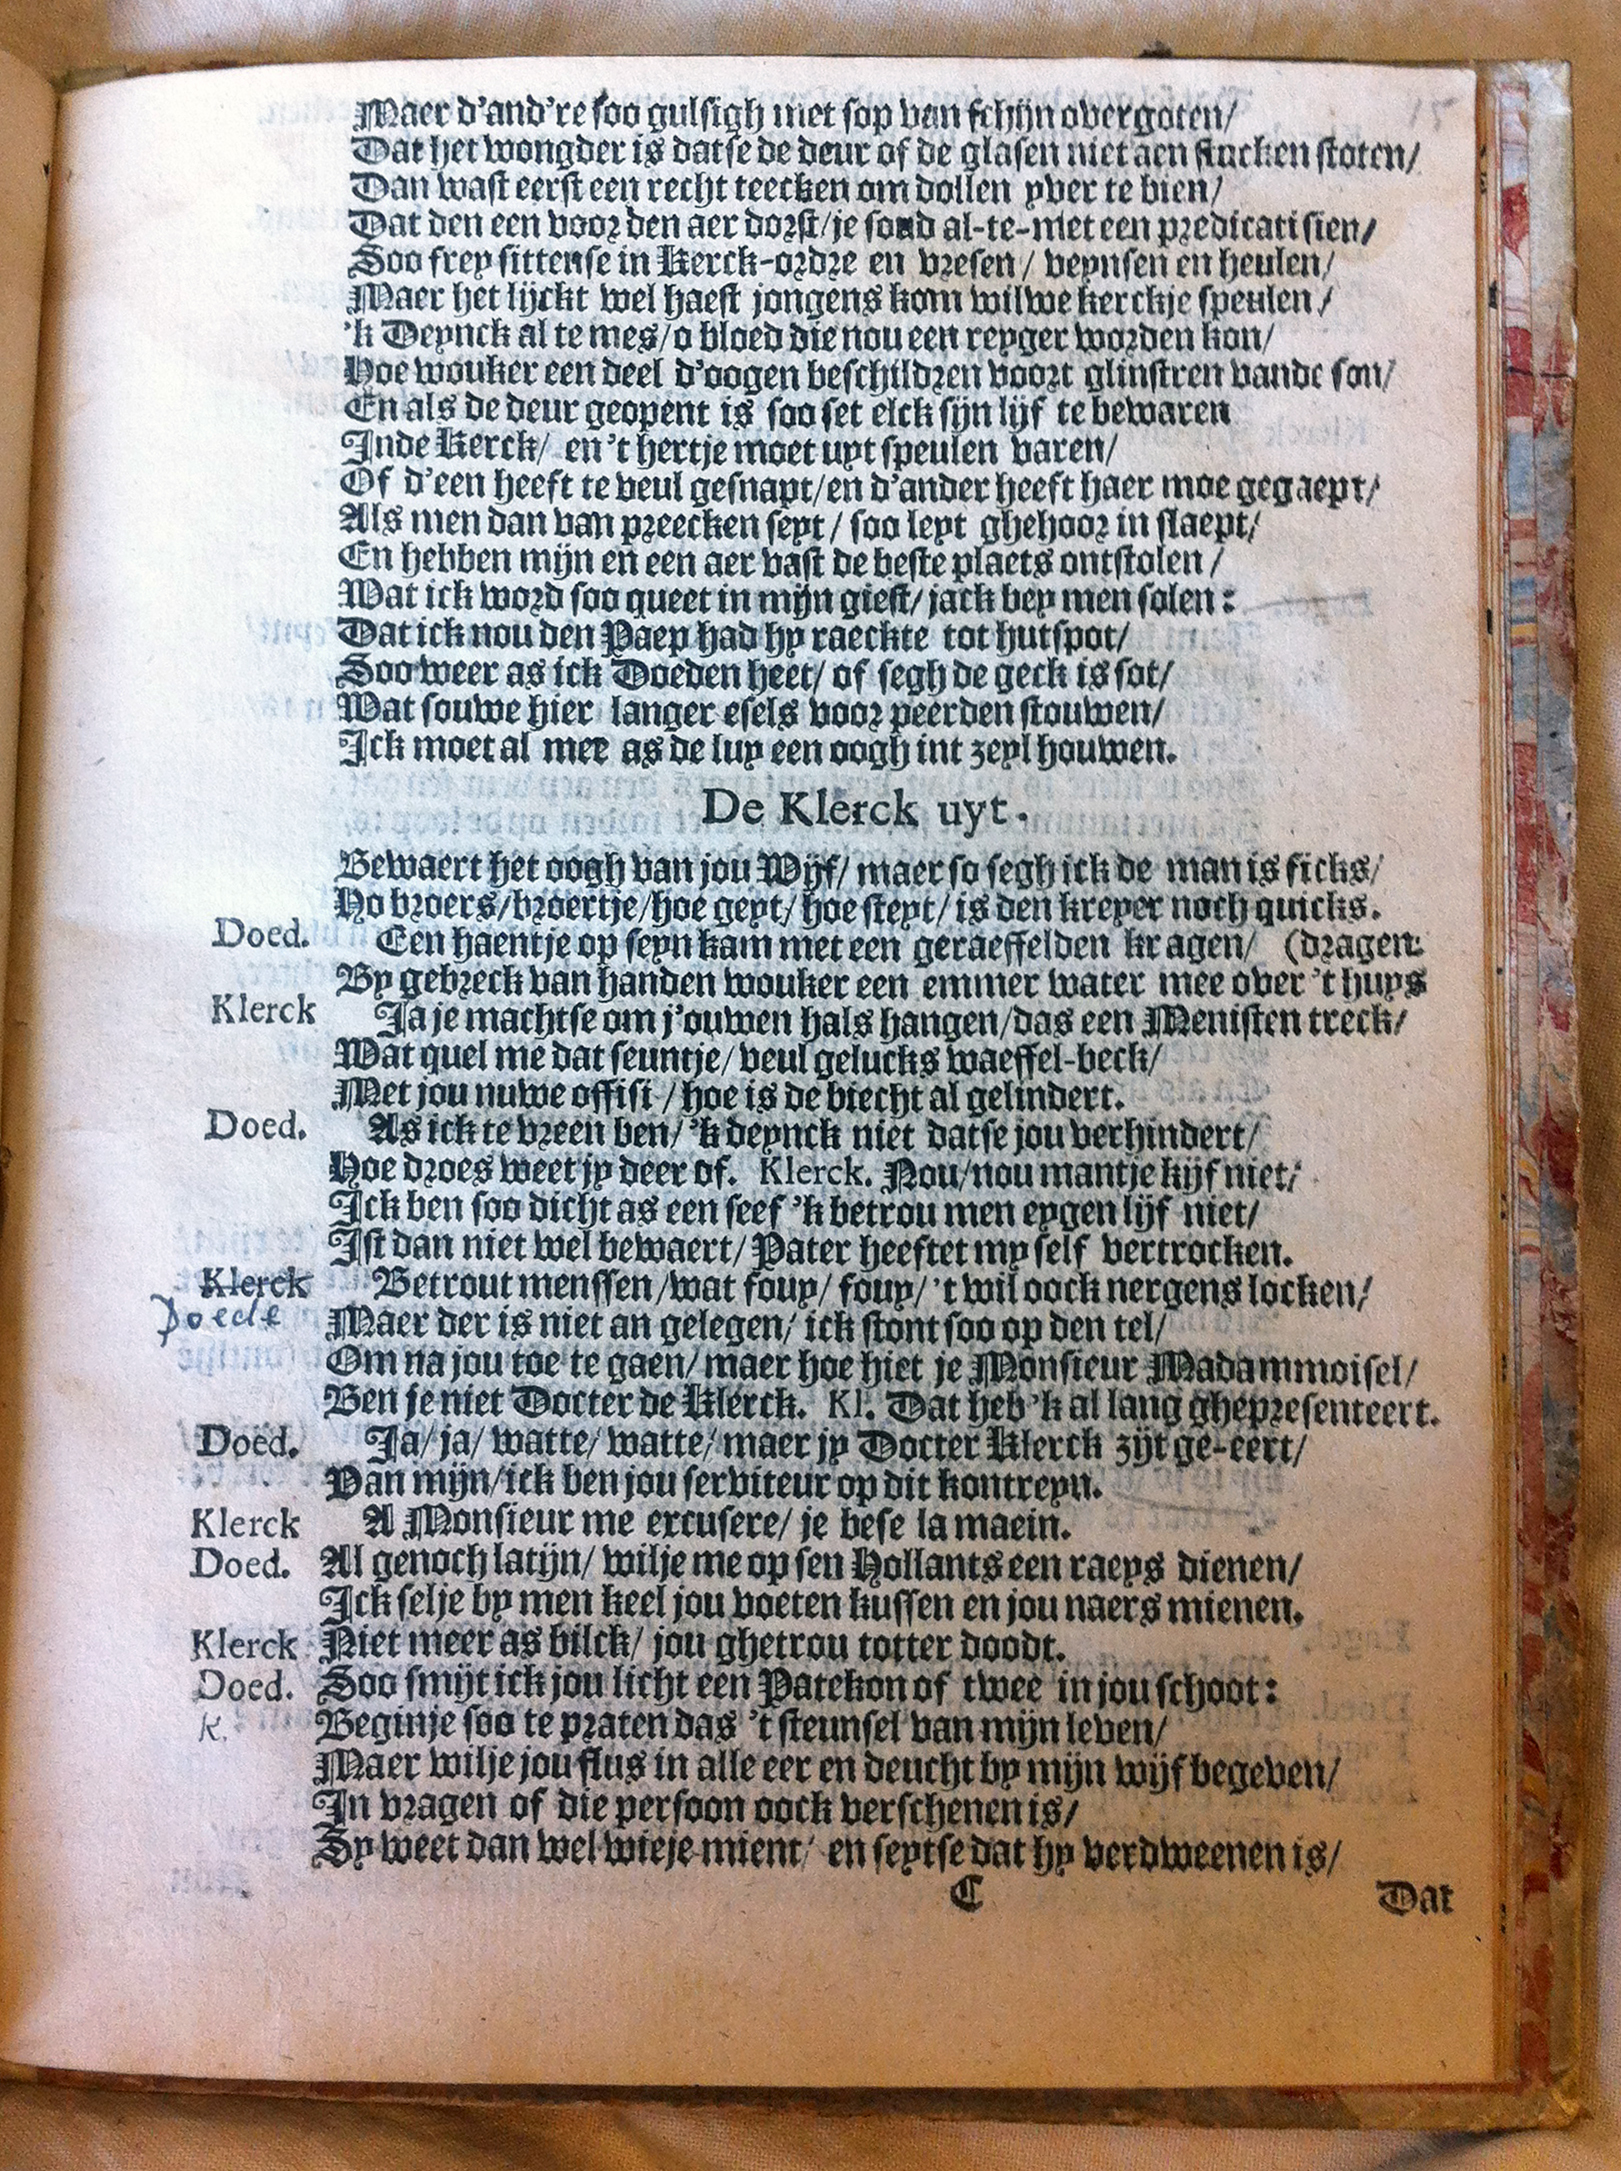 Maer d'and're soo gulsigh met sop van schijn overgoten/
Dat het wongder is datse de deur of de glasen niet aen stucken stoten/
Dan wast eerst een recht teecken om dollen yver te bien/
Dat den een voor den aer dorst/je soud al-te-met een predicati sien/
Soo frey sittense in Kerck-ordre en vresen/ veynsen en heulen/
Maer het lijckt wel haest jongens kom wilwe kerckje speulen/
'k Deynck al te mes/o bloed die nou een reyger worden kon/
Hoe wouker een deel d'oogen beschildren voort glinstren vande son/
En als de deur geopent is soo set elck sijn lijf te bewaren
Inde Kerck/ en 't hertje moet uyt speulen varen/
Of d'een heeft te veul gesnapt/en d'ander heeft haer moe gegaept/
Als men dan van preecken seyt/ soo leyt ghehoor in slaept/
En hebben mijn en een aer vast de beste plaets ontstolen/
Wat ick word soo queet in mijn giest/jack bey men solen:
Dat ick nou den Paep had hy raeckte tot hutspot/
Soo weer as ick Doeden heet/ of segh de geck is sot/
Wat souwe hier langer esels voor peerden stouwen/
Ick moet al mee as de luy een oogh int zeyl houwen.
De Klerck uyt.
Bewaert het oogh van jou Wijf/ maer so segh ick de man is ficks/
Ho broers/broertje/hoe geyt/hoe steyt/is den kreyer noch quicks.
Doed. Een haentje op seyn kam met een geraeffelden kragen/ (dragen.
By gebreck van handen wouker een emmer water mee over 't huys
Klerck Ja je machtse om j'ouwen hals hangen/das een Menisten treck/
Wat quel me dat seuntje/veul gelucks waeffel-beck/
Met jou nuwe offisi/ hoe is de biecht al gelindert.
Doed. As ick te vreen ben/'k deynck niet datse jou verhindert/
Hoe droes weet jy deer of. Klerck. Nou/nou mantje kijf niet/
Ick ben soo dicht as een seef 'k betrou men eygen lijf niet/
Ist dan niet wel bewaert/Pater heeftet my self vertrocken.
Klerck Betrout menssen/wat souy/ souy/'t wil oock nergens locken/
Doede Maer der is niet an gelegen/ ick stont soo op den tel/
Om na jou toe te gaen/maer hoe hiet je Monsieur Madammoisel/
Ben je niet Docter de Klerck. Kl. Dat heb 'k al lang ghepresenteert.
Doed. Ja/ja/watte/watte/maer jy Docter Klerck zijt ge-eert/
Van mijn/ick ben jou serviteur op dit kontreyn.
Klerck A Monsieur me excusere/ je bese la maein.
Doed. Al genoch latijn/ wilje me op sen Hollants een raeys dienen/
Ick selje by men keel jou voeten kussen en jou naers mienen.
Klerck Niet meer as bilck/ jou ghetrou totter doodt.
Doed. Soo smijt ick jou licht een Patekon of twee in jou schoot:
K. Beginje soo te praten das 't steunsel van mijn leven/
Maer wilje jou flus in alle eer en deucht by mijn wijf begeven/
In vragen of die persoon oock verschenen is/
Sy weet dan wel wieje mient/ en seytse dat hy verdweenen is/
C Dat